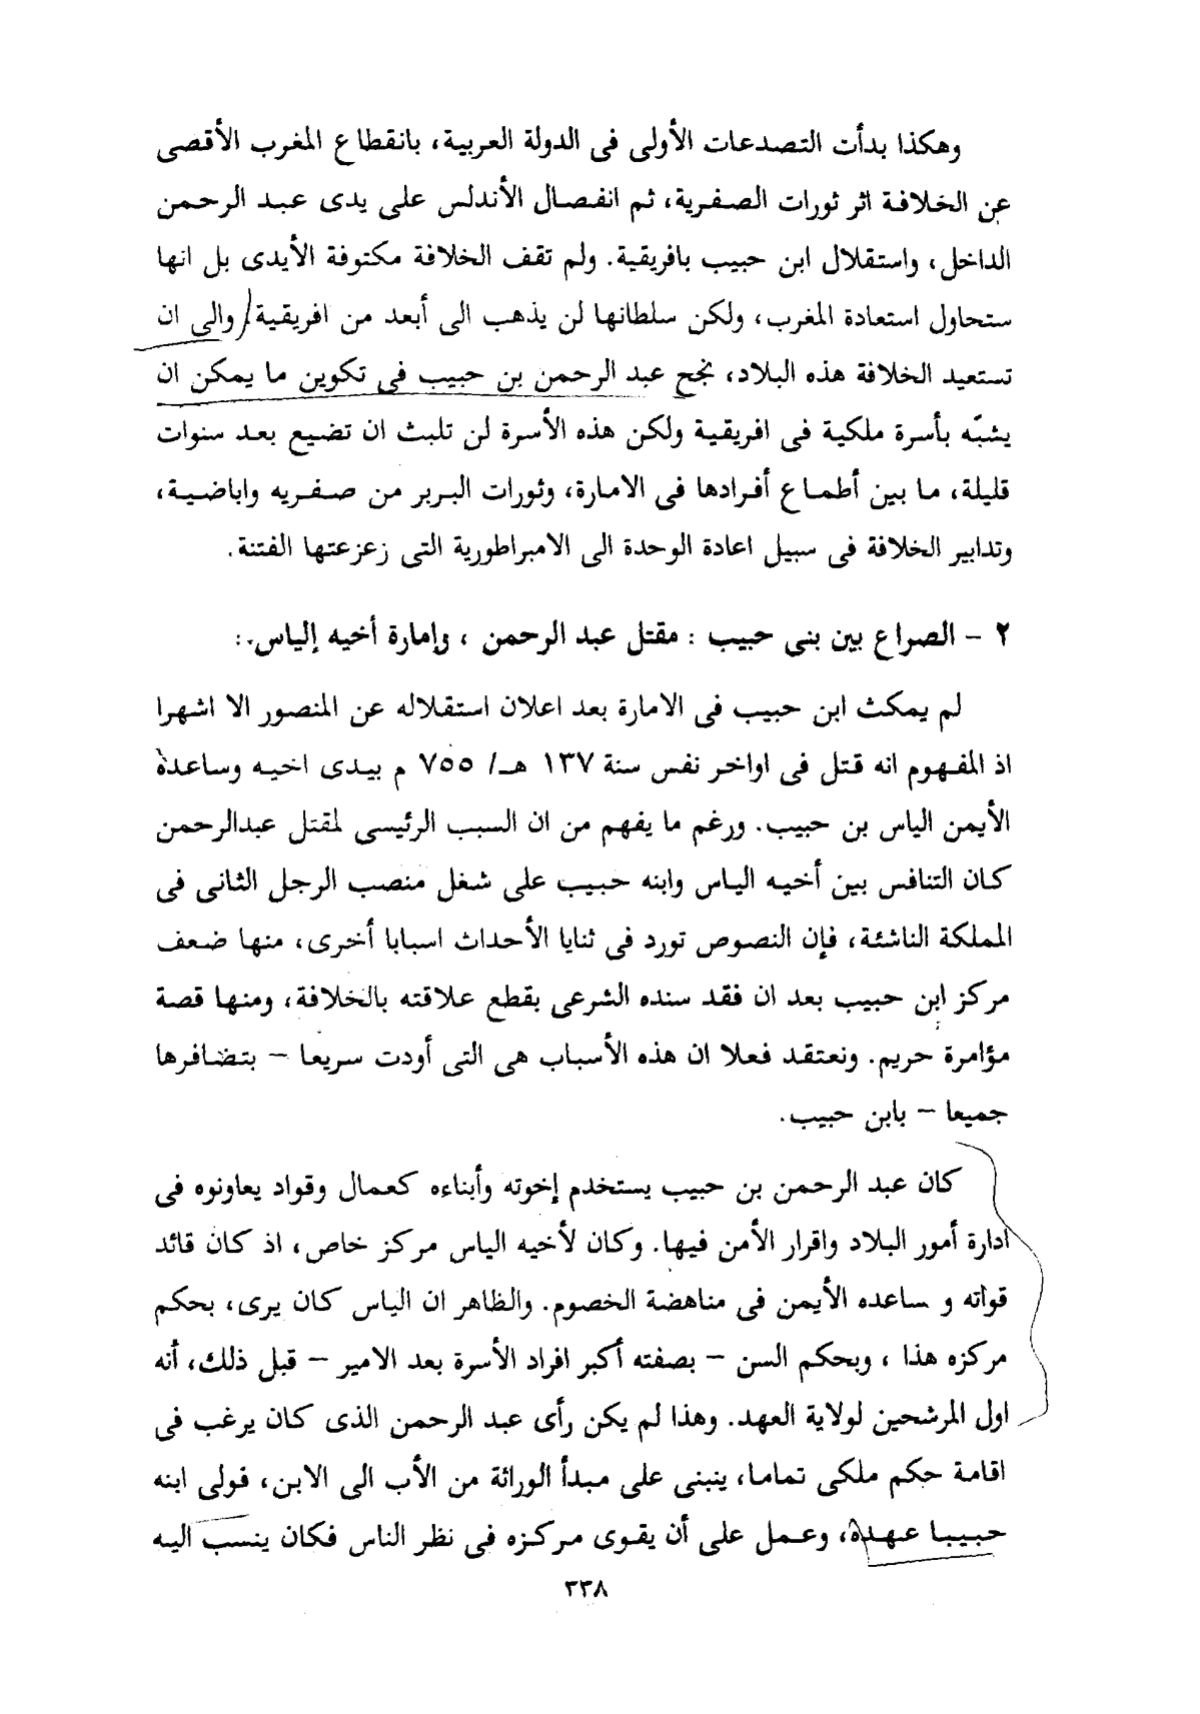 وهكذا بدأت التصدعات الأولى فى الدولة العربية، بانقطاع المغرب الأقصى
عن الخلافة اثر ثورات الصفرية، ثم انفصال الأندلس على يدى عبد الرحمن
الداخل، واستقلال ابن حبيب بافريقية. ولم تقف الخلافة مكتوفة الأيدى بل انها
ستحاول استعادة المغرب، ولكن سلطانها لن يذهب الى أبعد من افريقية. والى ان
تستعيد الخلافة هذه البلاد، نجح عبد الرحمن بن حبيب فى تكوين ما يمكن ان
يشبّه بأسرة ملكية فى افريقية ولكن هذه الأسرة لن تلبث ان تضيع بعد سنوات
قليلة، ما بين أطماع أفرادها فى الامارة، وثورات البربر من صفريه واباضية،
وتدابير الخلافة فى سبيل اعادة الوحدة الى الامبراطورية التى زعزعتها الفتنة.
٢ - الصراع بين بنى حبيب : مقتل عبد الرحمن ، وإمارة أخيه إلياس.:
لم يمكث ابن حبيب فى الامارة بعد اعلان استقلاله عن المنصور الا اشهرا
اذ المفهوم انه قتل فى اواخر نفس سنة ١٣٧ هـ/ ٧٥٥ م بيدى اخيه وساعدة
الأيمن الياس بن حبيب. ورغم ما يفهم من ان السبب الرئيسى لمقتل عبدالرحمن
كان التنافس بين أخيه الياس وابنه حبيب على شغل منصب الرجل الثانى فى
المملكة الناشئة، فإن النصوص تورد فى ثنايا الأحداث اسبابا أخرى، منها ضعف
مركز ابن حبيب بعد ان فقد سنده الشرعى بقطع علاقته بالخلافة، ومنها قصة
مؤامرة حريم. ونعتقد فعلا ان هذه الأسباب هى التى أودت سريعا - بتضافرها
جميعا - بابن حبيب.
كان عبد الرحمن بن حبيب يستخدم إخوته وأبناءه كعمال وقواد يعاونوه فى
ادارة أمور البلاد واقرار الأمن فيها. وكان لأخيه الياس مركز خاص، اذ كان قائد
قواته و ساعده الأيمن فى مناهضة الخصوم. والظاهر ان الياس كان يرى، بحكم
مركزه هذا ، وبحكم السن - بصفته أكبر افراد الأسرة بعد الامير - قبل ذلك، أنه
اول المرشحين لولاية العهد. وهذا لم يكن رأى عبد الرحمن الذى كان يرغب فى
اقامة حكم ملكى تماما، ينبنى على مبدأ الوراثة من الأب الى الابن، فولى ابنه
حبيبا عهدة، وعمل على أن يقوى مركزه فى نظر الناس فكان ينسب اليه
٣٣٨